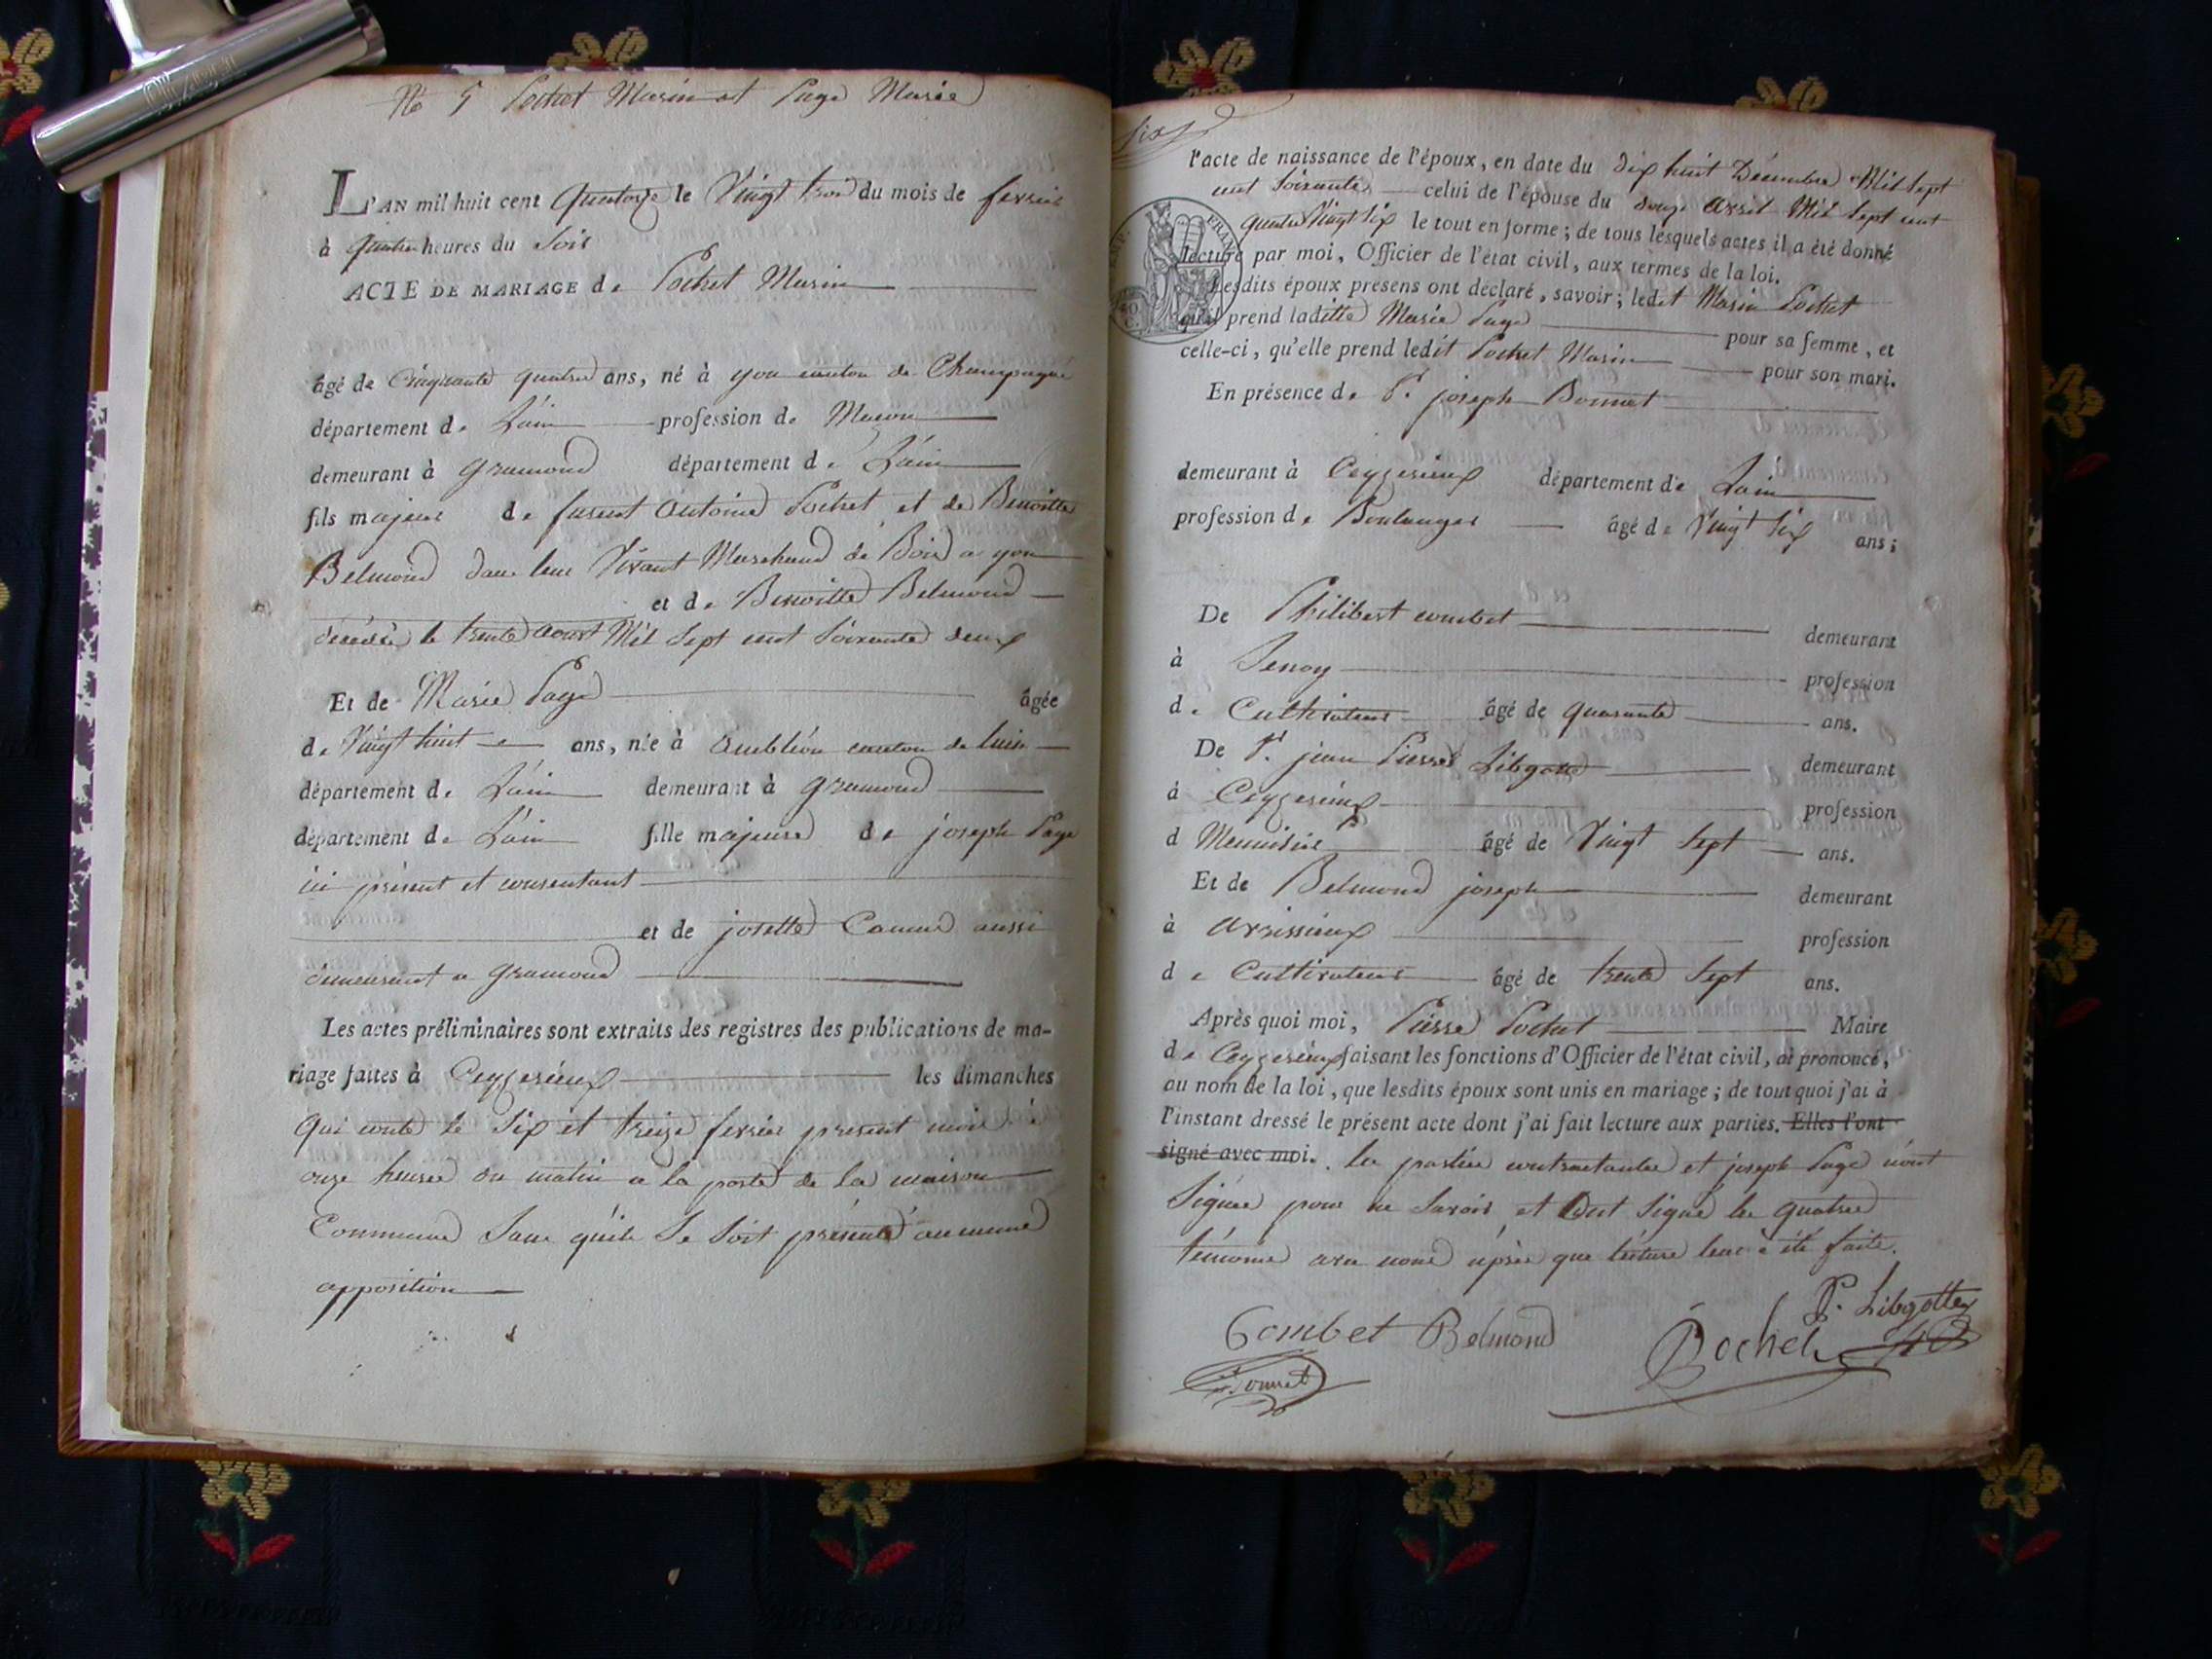 No 5 Pochet Marin et Page Marie
L'AN mil huit cent quatorze le Vingt trois du mois de fevrier
à quatre heures du Soir
ACTE DE MARIAGE de Pochet Marin
âgé de Cinquante quatre ans, né à yon canton de Champagne
département de L'ain profession de Macon
demeurant à gramond département de L'ain
fils majeur de furent Antoine Pochet et de Benoitte
Belmond dans leur Vivant Marchand de Bois a yon
et de Benoitte Belmond
décédée le trente aoust Mil Sept cent Soixante deux
Et de Marie Page âgée
de Vingt huit ans, née à Ambléon canton de luis
département de L'ain demeurant à gramond
département de L'ain fille majeure de joseph Page
ici présent et consentant
et de josette Camus aussi
demeurant a gramond
Les actes préliminaires sont extraits des registres des publications de ma-
riage faites à Ceyzerieux les dimanches
qui conte le Six et treize fevrier present mois à
onze heures du matin a la porte de la maison
Commune Sans qu'ils Se Soit présenté aucunne
opposition
Six
l'acte de naissance de l'époux, en date du dix huit Décembre Mil Sept
cent Soixante celui de l'épouse du douze avril Mil Sept cent
quatre Vingt Six le tout en forme; de tous lesquels actes il a été donné
lecture par moi, Officier de l'état civil, aux termes de la loi.
Lesdits époux présens ont déclaré, savoir; ledit Marin Pochet
qu'il prend laditte Marie Page pour sa femme, et
celle-ci, qu'elle prend ledit Pochet Marin pour son mari.
En présence de Sr. joseph Bonnet
demeurant à Ceyzerieux département de L'ain
profession de Boulanger âgé de Vingt Six ans;
De Philibert combet demeurant
à Senoy profession
de Cultivateur âgé de quarante ans.
De Sr. jean Pierre Libgotte demeurant
à Ceyzerieux profession
d Menuisier âgé de Vingt Sept ans.
Et de Belmond joseph demeurant
à avrissieux profession
de Cultivateur âgé de trente Sept ans.
Après quoi moi, Pierre Pochet Maire
de Ceyzerieux faisant les fonctions d'Officier de l'état civil, ai prononcé,
au nom de la loi, que lesdits époux sont unis en mariage; de tout quoi j'ai à
l'instant dressé le présent acte dont j'ai fait lecture aux parties. Elles l'ont
signé avec moi. les parties contractantes et joseph Page n'ont
Signée pour ne Savoir et Ont Signé les quatres
témoins avec nous après que lecture leur a été faite.
P. Libgotte
Combet Belmond
Pochet
Bonnet